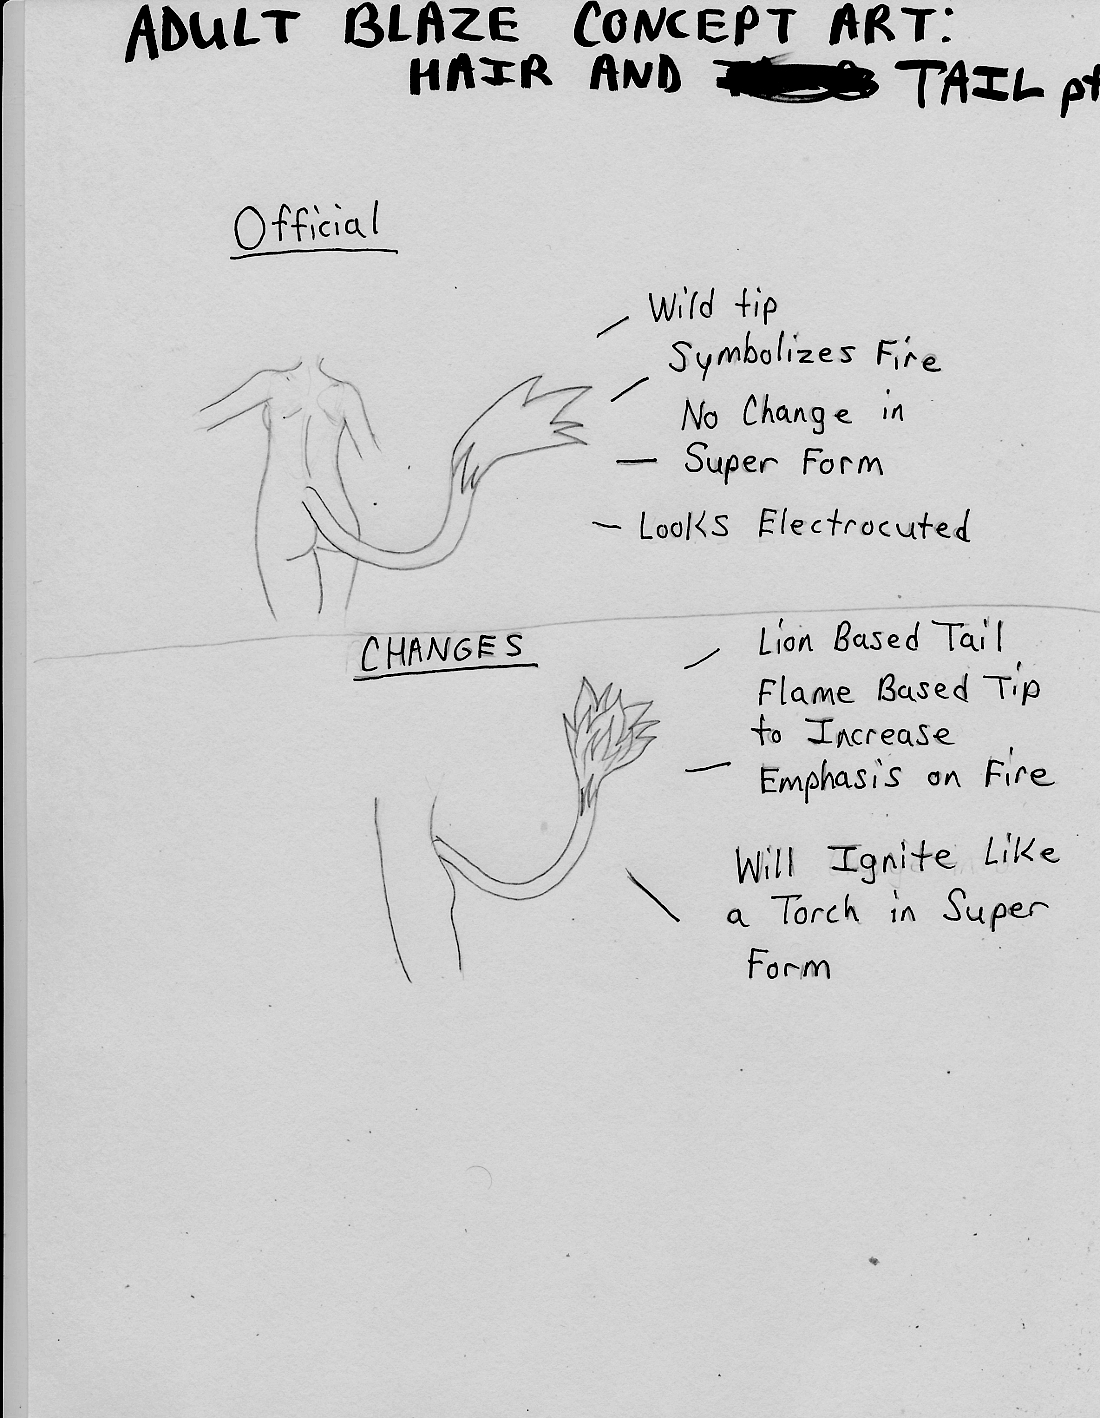 ADULT BLAZE CONCEPT ART:
HAIR AND TAIL pt
Official
Wild tip
Symbolizes Fire
No Change in
Super Form
Looks Electrocuted
CHANGES
Lion Based Tail
Flame Based Tip
to Increase
Emphasis on Fire
Will Ignite Like
a Torch in Super
Form